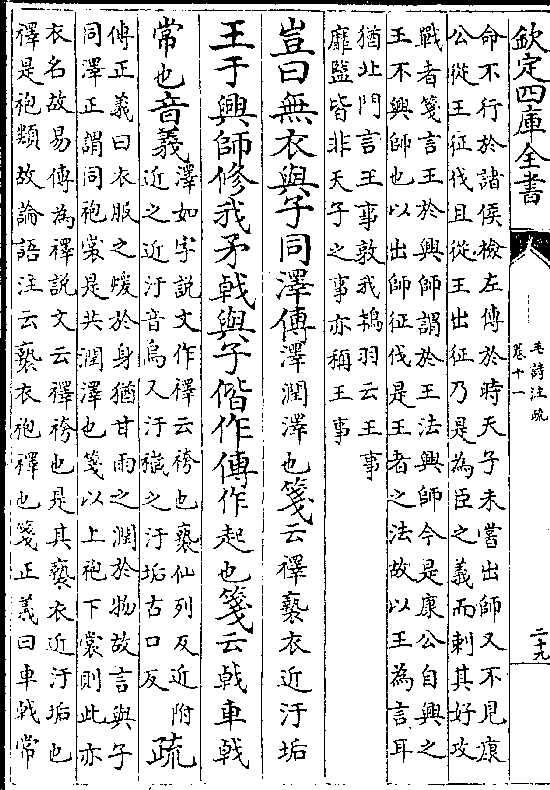 欽定四庫全書
毛詩注疏
卷十一
二十九
命不行於諸侯檢左傳於時天子未嘗出師又不見康
公從王征伐且從王出征乃是為臣之義而刺其好攻
戰者箋言王於興師謂於王法興師今是康公自興之
王不興師也以出師征伐是王者之法故以王為言耳
猶北門言王事敦我鴇羽云王事
靡盬皆非天子之事亦稱王事
豈曰無衣與子同澤傳澤潤澤也箋云襗褻衣近汙垢
王于興師修我矛戟與子偕作傳作起也箋云戟車戟
常也音義澤如字說文作襗云袴也褻仙列反近附
近之近汙音烏又汙穢之汙垢古口反
疏
傳正義曰衣服之煖於身猶甘雨之潤於物故言與子
同澤正謂同袍裳是共潤澤也箋以上袍下裳則此亦
衣名故易傳為襗說文云襗袴也是其褻衣近汙垢也
襗是袍類故論語注云褻衣袍襗也箋正義曰車戟常